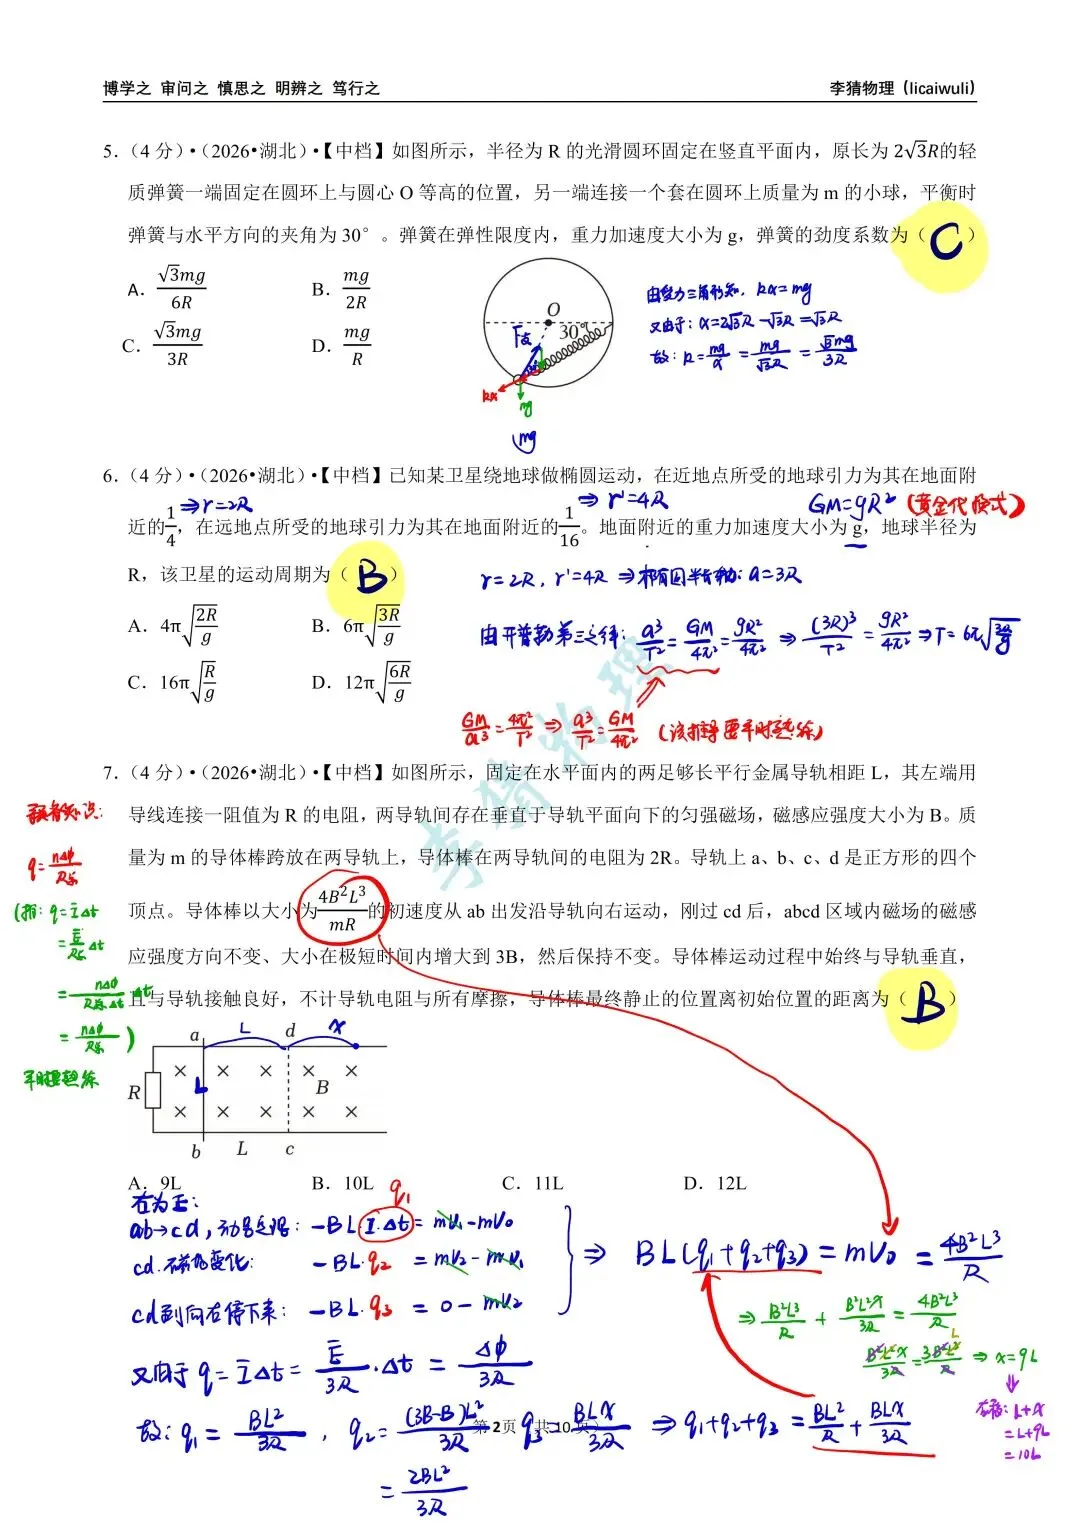 博学之 审问之 慎思之 明辨之 笃行之 李猜物理（licaiwuli）
5．（4 分）•（2026•湖北）•【中档】如图所示，半径为 R 的光滑圆环固定在竖直平面内，原长为 2√3R的轻
质弹簧一端固定在圆环上与圆心 O 等高的位置，另一端连接一个套在圆环上质量为 m 的小球，平衡时
弹簧与水平方向的夹角为 30°。弹簧在弹性限度内，重力加速度大小为 g，弹簧的劲度系数为（ C ）
A．√3mg/6R B．mg/2R
C．√3mg/3R D．mg/R
O
30°
F支
kx
mg
mg
由受力三角形知，kx=mg
又由于：x=2√3R-√3R=√3R
故：k=mg/x=mg/√3R=√3mg/3R
6．（4 分）•（2026•湖北）•【中档】已知某卫星绕地球做椭圆运动，在近地点所受的地球引力为其在地面附
⇒r=2R ⇒r'=4R GM=gR²（黄金代换式）
近的1/4，在远地点所受的地球引力为其在地面附近的1/16。地面附近的重力加速度大小为 g，地球半径为
R，该卫星的运动周期为（ B ）
r=2R, r'=4R ⇒椭圆半长轴：a=3R
A．4π√(2R/g) B．6π√(3R/g)
由开普勒第三定律：a³/T²=GM/4π²=gR²/4π² ⇒ (3R)³/T²=gR²/4π² ⇒T=6π√(3R/g)
C．16π√(R/g) D．12π√(6R/g)
GM/a³=4π²/T² ⇒ a³/T²=GM/4π²（该推导要平时熟练）
李猜物理
7．（4 分）•（2026•湖北）•【中档】如图所示，固定在水平面内的两足够长平行金属导轨相距 L，其左端用
导线连接一阻值为 R 的电阻，两导轨间存在垂直于导轨平面向下的匀强磁场，磁感应强度大小为 B。质
量为 m 的导体棒跨放在两导轨上，导体棒在两导轨间的电阻为 2R。导轨上 a、b、c、d 是正方形的四个
顶点。导体棒以大小为4B²L³/mR的初速度从 ab 出发沿导轨向右运动，刚过 cd 后，abcd 区域内磁场的磁感
应强度方向不变、大小在极短时间内增大到 3B，然后保持不变。导体棒运动过程中始终与导轨垂直，
且与导轨接触良好，不计导轨电阻与所有摩擦，导体棒最终静止的位置离初始位置的距离为（ B ）
q=nΔΦ/R总
q=ĪΔt
=Ē/R总 Δt
=nΔΦ/R总·Δt Δt
=nΔΦ/R总）
平时要熟练
a L d x
R L B
b L c
A．9L B．10L C．11L D．12L
右为正：
q₁
ab→cd，动量定理：-BL·I·Δt=mv₁-mv₀
cd.磁场变化： -BL·q₂ =mv₂-mv₁
cd到向右停下来：-BL·q₃ =0-mv₂
⇒ BL(q₁+q₂+q₃)=mv₀=4B²L³/R
⇒ B²L³/R + B²L²x/3R = 4B²L³/R
B²L²x/3R=3B²L³/R ⇒ x=9L
又由于 q=ĪΔt=Ē/3R·Δt=ΔΦ/3R
故：q₁=BL²/3R， q₂=(3B-B)L²/3R q₃ BLx/3R ⇒q₁+q₂+q₃=BL²/R+BLx/3R
=2BL²/3R
L+x
=L+9L
=10L
第 2页（共 10 页）